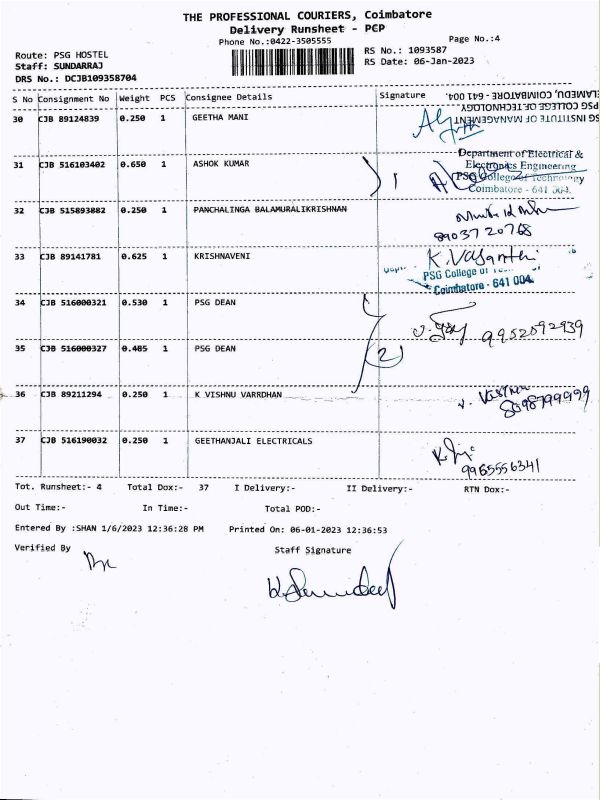 THE PROFESSIONAL COURIERS, Coimbatore
Delivery Runsheet - PCP
Phone No.:0422-3505555
Page No.:4
Route: PSG HOSTEL
RS No.: 1093587
Staff: SUNDARRAJ
RS Date: 06-Jan-2023
DRS No.: DCJB109358704
S No Consignment No Weight PCS Consignee Details Signature
ELAMEDU, COIMBATORE - 641 004.
PSG COLLEGE OF TECHNOLOGY
SG INSTITUTE OF MANAGEMENT
30 CJB 89124839 0.250 1 GEETHA MANI
31 CJB 516103402 0.650 1 ASHOK KUMAR
1
Department of Electrical &
Electronics Engineering
PSG College of Technology
Coimbatore - 641 004.
32 CJB 515893882 0.250 1 PANCHALINGA BALAMURALIKRISHNAN
8903720768
33 CJB 89141781 0.625 1 KRISHNAVENI
K. Vasanthi
PSG College of
Coimbatore - 641 004.
34 CJB 516000321 0.530 1 PSG DEAN
9952592939
35 CJB 516000327 0.485 1 PSG DEAN
2
36 CJB 89211294 0.250 1 K VISHNU VARRDHAN
8098799999
37 CJB 516190032 0.250 1 GEETHANJALI ELECTRICALS
9965556341
Tot. Runsheet:- 4 Total Dox:- 37 I Delivery:- II Delivery:- RTN Dox:-
Out Time:- In Time:- Total POD:-
Entered By :SHAN 1/6/2023 12:36:28 PM Printed On: 06-01-2023 12:36:53
Verified By Staff Signature